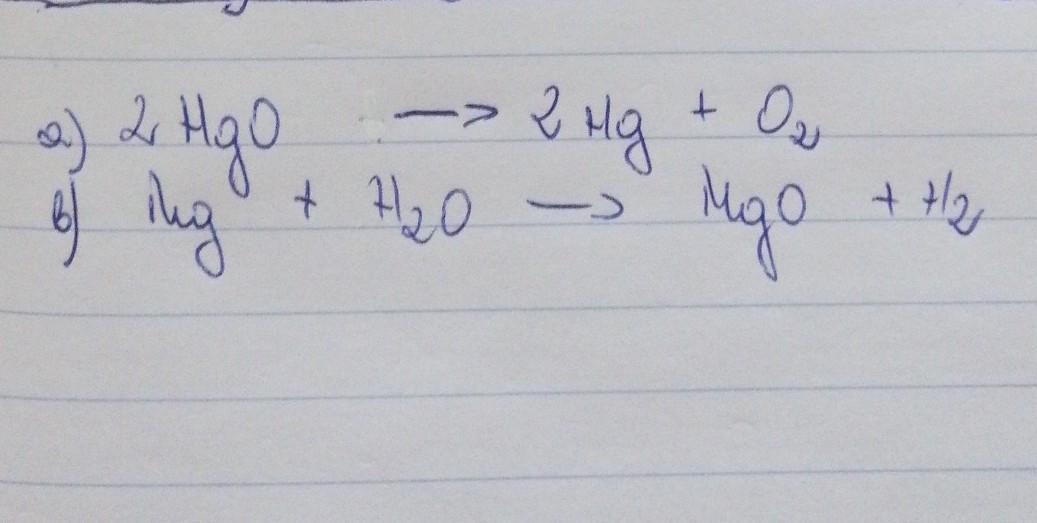 a) 2 HgO —> 2 Hg + O₂
b) Mg + H₂O —> MgO + H₂